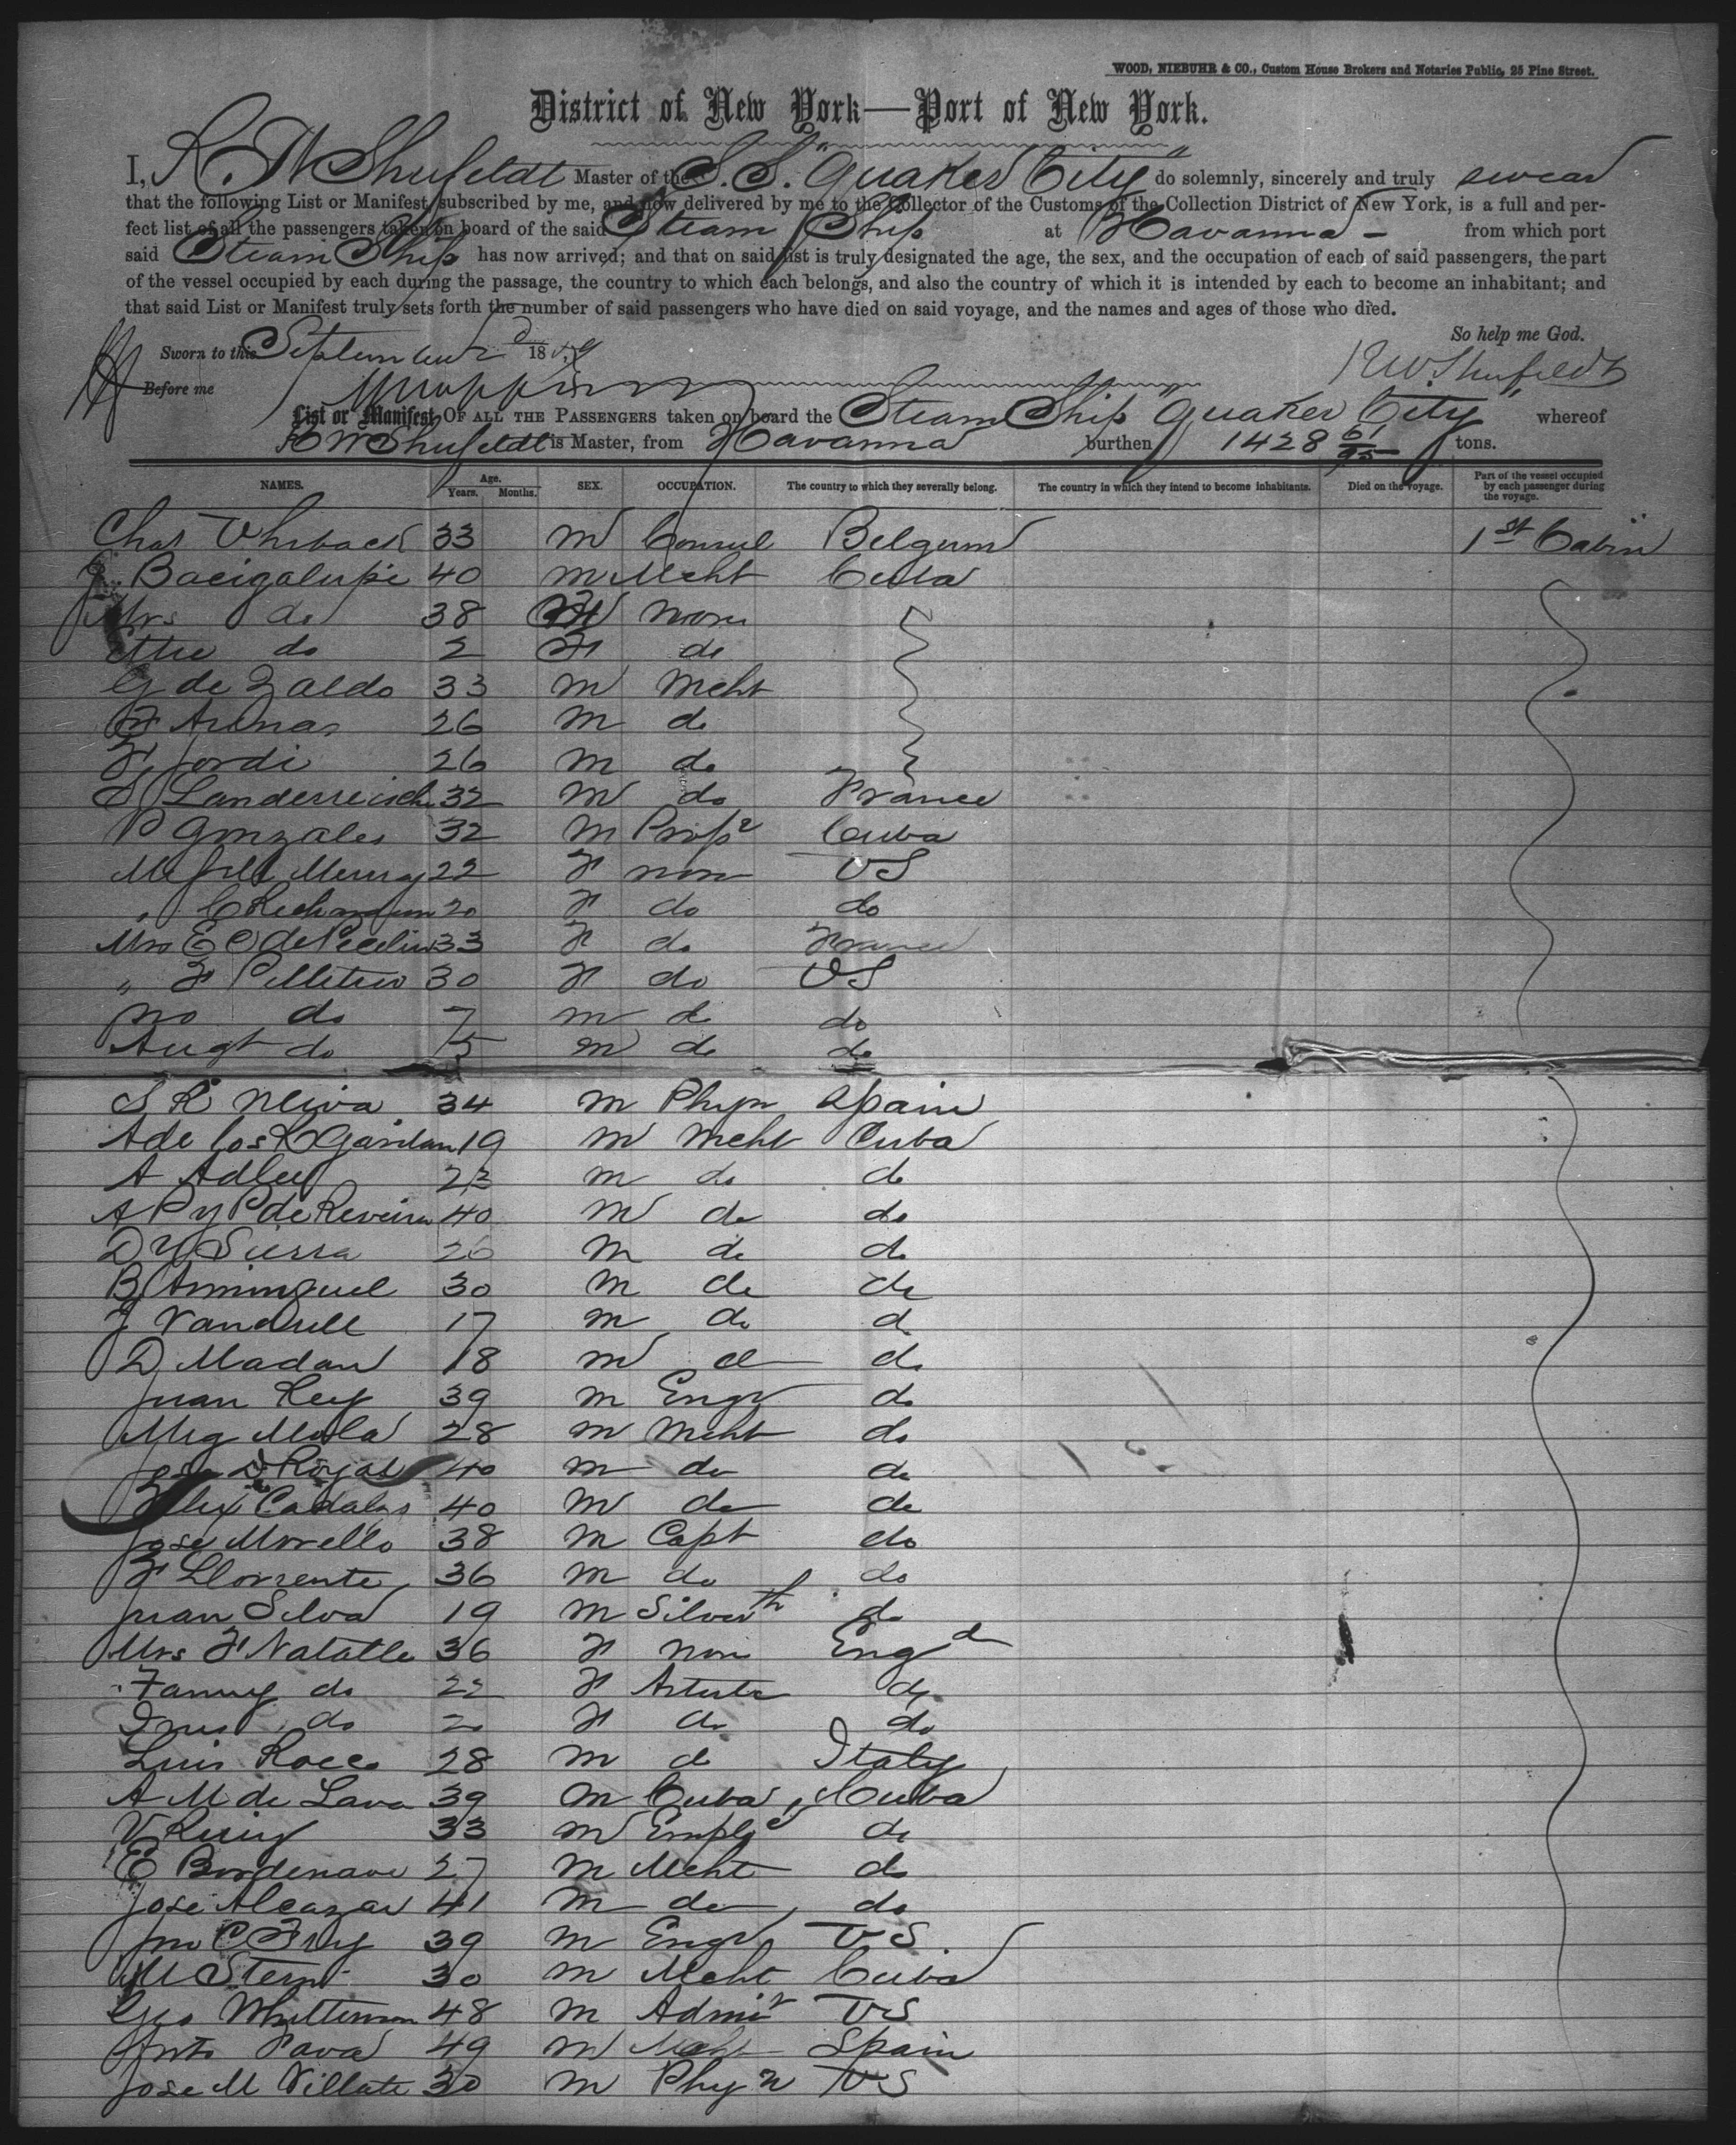 WOOD, NIEBUHR & CO., Custom House Brokers and Notaries Public, 25 Pine Street.
District of New York—Port of New York.
I, R. W Shufeldt Master of the S. S. "Quaker City" do solemnly, sincerely and truly swear
that the following List or Manifest, subscribed by me, and now delivered by me to the Collector of the Customs of the Collection District of New York, is a full and per-
fect list of all the passengers taken on board of the said Steam Ship at Havanna - from which port
said Steam Ship has now arrived; and that on said list is truly designated the age, the sex, and the occupation of each of said passengers, the part
of the vessel occupied by each during the passage, the country to which each belongs, and also the country of which it is intended by each to become an inhabitant; and
that said List or Manifest truly sets forth the number of said passengers who have died on said voyage, and the names and ages of those who died.
So help me God.
Sworn to this September 2d 1859
R W Shufeldt
Before me
List or Manifest OF ALL THE PASSENGERS taken on board the Steam Ship "Quaker City" whereof
R W Shufeldt is Master, from Havanna burthen 1428 61/95 tons.
NAMES. Age. Years. Months. SEX. OCCUPATION. The country to which they severally belong. The country in which they intend to become inhabitants. Died on the voyage. Part of the vessel occupied by each passenger during the voyage.
Chas 33 M Consul Belgium 1st Cabin
J. Bacigalupi 40 M Mcht Cuba
Mrs do 38 none
do 2 F do
G de Zaldo 33 M Mcht
F Arenas 26 M do
F Jordi 26 M do
32 M do France
P Gonzales 32 M Propr Cuba
Murray 22 F none US
" C Richardson 20 F do do
Mrs E C de 33 F do France
" F Pelletier 30 F do US
do 7 M do do
Augt do 5 M do do
S R Neiva 34 M Phyn Spain
A de los R 19 M Mcht Cuba
A 23 M do do
A P y P de 40 M do do
D Y Sierra 26 M do do
B 30 M do do
J Vandrell 17 M do do
D Madan 18 M do do
Juan Rey 39 M Engr do
Mig Mola 28 M Mcht do
D Royal 40 M do do
Felix 40 M do do
Jose Morello 38 M Capt do
F Llorrente 36 M do do
Juan Silva 19 M Silverth do
Mrs F Natalle 36 F none Engd
Fanny do 22 F Artiste do
do 20 F do do
Luis Rocco 28 M do Italy
A M de Lava 39 M Cuba Cuba
V Ruiz 33 M Emple do
E Bordenave 27 M Mcht do
Jose Alcazar 41 M do do
Jno C Fry 39 M Engr US
M Stern 30 M Mcht Cuba
Geo Whittemore 48 M Admir US
Anto Pava 49 M Mcht Spain
Jose M Villate 30 M Phyn US